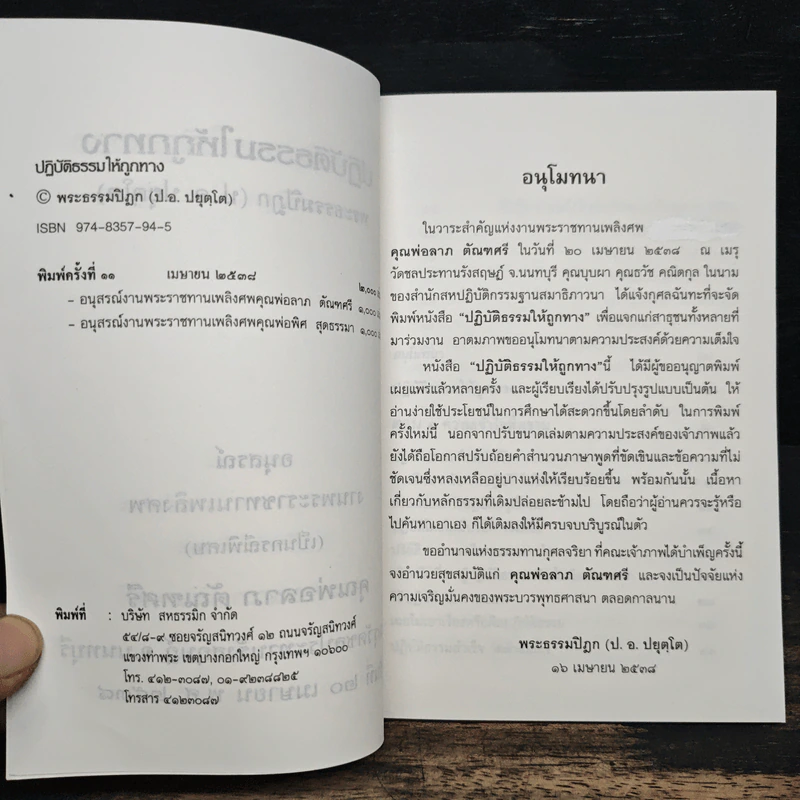 ปฏิบัติธรรมให้ถูกทาง
© พระธรรมปิฎก (ป.อ. ปยุตฺโต)
ISBN 974-8357-94-5
พิมพ์ครั้งที่ ๑๑ เมษายน ๒๕๓๘
๒,๐๐๐
– อนุสรณ์งานพระราชทานเพลิงศพคุณพ่อลาภ ตัณฑศรี ๑,๐๐๐
– อนุสรณ์งานพระราชทานเพลิงศพคุณพ่อพิศ สุดธรรมา ๑,๐๐๐
พิมพ์ที่ : บริษัท สหธรรมิก จำกัด
๕๔/๘-๙ ซอยจรัญสนิทวงศ์ ๑๒ ถนนจรัญสนิทวงศ์
แขวงท่าพระ เขตบางกอกใหญ่ กรุงเทพฯ ๑๐๖๐๐
โทร. ๔๑๒-๓๐๘๗, ๐๑-๙๒๓๘๘๒๕
โทรสาร ๔๑๒๓๐๘๗
อนุโมทนา
ในวาระสำคัญแห่งงานพระราชทานเพลิงศพ
คุณพ่อลาภ ตัณฑศรี ในวันที่ ๒๐ เมษายน ๒๕๓๘ ณ เมรุ
วัดชลประทานรังสฤษฎ์ จ.นนทบุรี คุณบุบผา คุณธวัช คณิตกุล ในนาม
ของสำนักสหปฏิบัติกรรมฐานสมาธิภาวนา ได้แจ้งกุศลฉันทะที่จะจัด
พิมพ์หนังสือ “ปฏิบัติธรรมให้ถูกทาง” เพื่อแจกแก่สาธุชนทั้งหลายที่
มาร่วมงาน อาตมภาพขออนุโมทนาตามความประสงค์ด้วยความเต็มใจ
หนังสือ “ปฏิบัติธรรมให้ถูกทาง”นี้ ได้มีผู้ขออนุญาตพิมพ์
เผยแพร่แล้วหลายครั้ง และผู้เรียบเรียงได้ปรับปรุงรูปแบบเป็นต้น ให้
อ่านง่ายใช้ประโยชน์ในการศึกษาได้สะดวกขึ้นโดยลำดับ ในการพิมพ์
ครั้งใหม่นี้ นอกจากปรับขนาดเล่มตามความประสงค์ของเจ้าภาพแล้ว
ยังได้ถือโอกาสปรับถ้อยคำสำนวนภาษาพูดที่ขัดเขินและข้อความที่ไม่
ชัดเจนซึ่งหลงเหลืออยู่บางแห่งให้เรียบร้อยขึ้น พร้อมกันนั้น เนื้อหา
เกี่ยวกับหลักธรรมที่เดิมปล่อยละข้ามไป โดยถือว่าผู้อ่านควรจะรู้หรือ
ไปค้นหาเอาเอง ก็ได้เติมลงให้มีครบจบบริบูรณ์ในตัว
ขออำนาจแห่งธรรมทานกุศลจริยา ที่คณะเจ้าภาพได้บำเพ็ญครั้งนี้
จงอำนวยสุขสมบัติแก่ คุณพ่อลาภ ตัณฑศรี และจงเป็นปัจจัยแห่ง
ความเจริญมั่นคงของพระบวรพุทธศาสนา ตลอดกาลนาน
พระธรรมปิฎก (ป. อ. ปยุตฺโต)
๑๖ เมษายน ๒๕๓๘